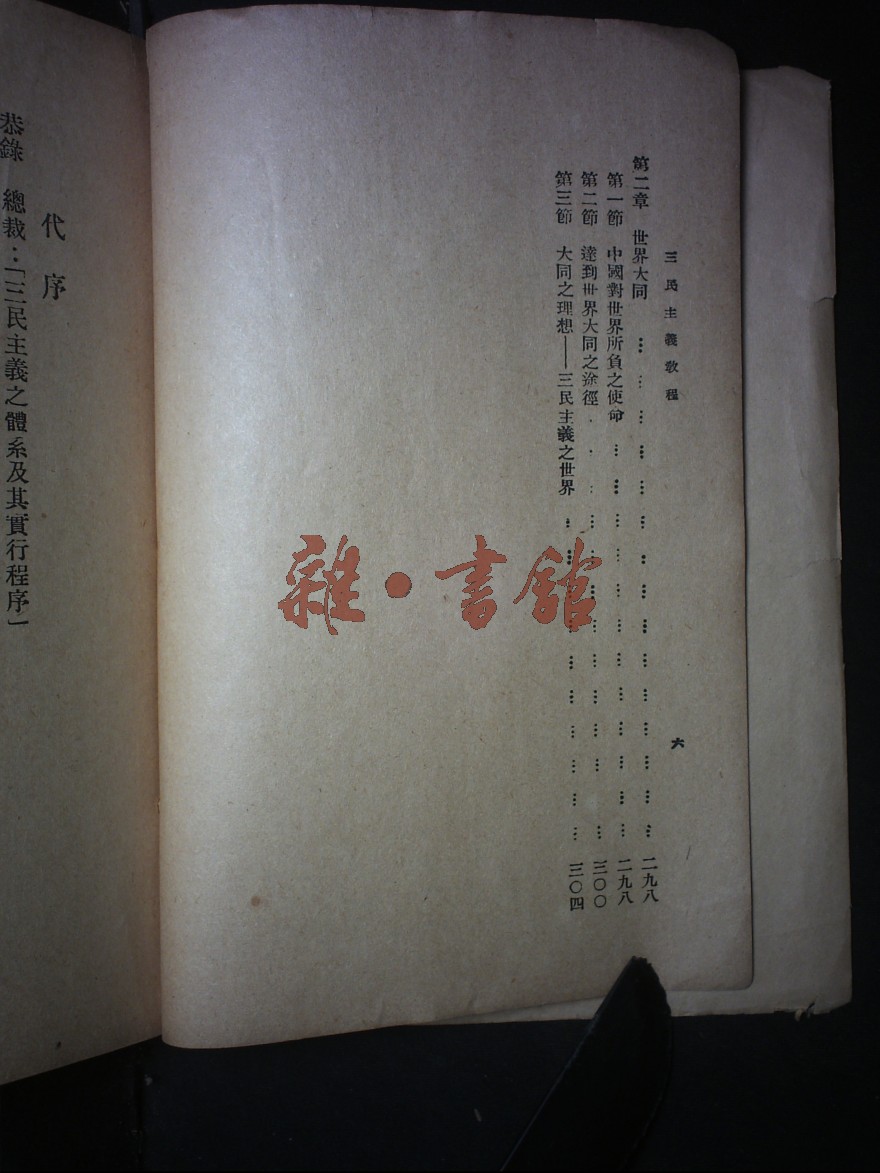 三民主義教程
六
第二章 世界大同 …………………………………… 二九八
第一節 中國對世界所負之使命 …………………………………… 二九八
第二節 達到世界大同之途徑 …………………………………… 三〇〇
第三節 大同之理想——三民主義之世界 …………………………………… 三〇四
雜·書館
代序
恭錄 總裁：「三民主義之體系及其實行程序」